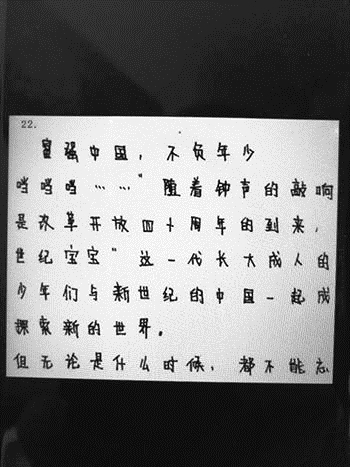 22.
富强中国，不负年少
当当当……“随着钟声的敲响
是改革开放四十周年的到来，
世纪宝宝”这一代长大成人的
少年们与新世纪的中国一起成
探索新的世界。
但无论是什么时候，都不能忘